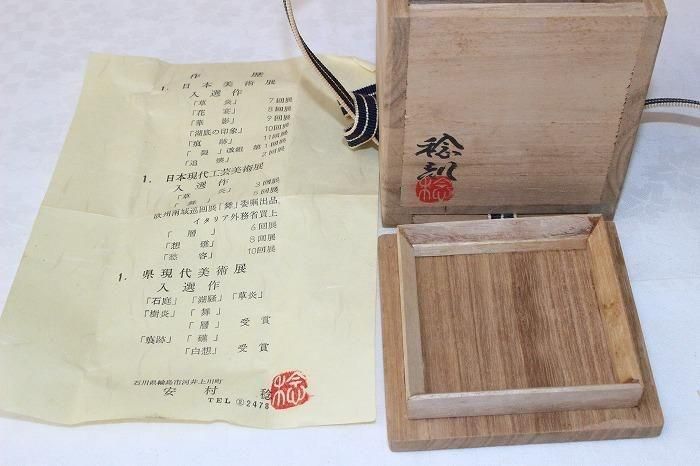 作歴
1. 日本美術展
入選作
「草炎」 7回展
「花宴」 8回展
「華影」 9回展
「湖底の印象」 10回展
「痕跡」 11回展
「舞」改組 第1回展
「追懐」 2回展
1. 日本現代工芸美術展
入選作
「草炎」 3回展
「舞」 5回展
欧州南城巡回展「舞」委嘱出品
イタリア外務省買上
「層」 6回展
「想礁」 8回展
「悲容」 10回展
1. 県現代美術展
入選作
「石庭」「湖騒」「草炎」
「樹炎」「舞」
「層」受賞
「痕跡」「礁」
「白想」受賞
石川県輪島市河井上川町
安村稔
TEL ② 2478